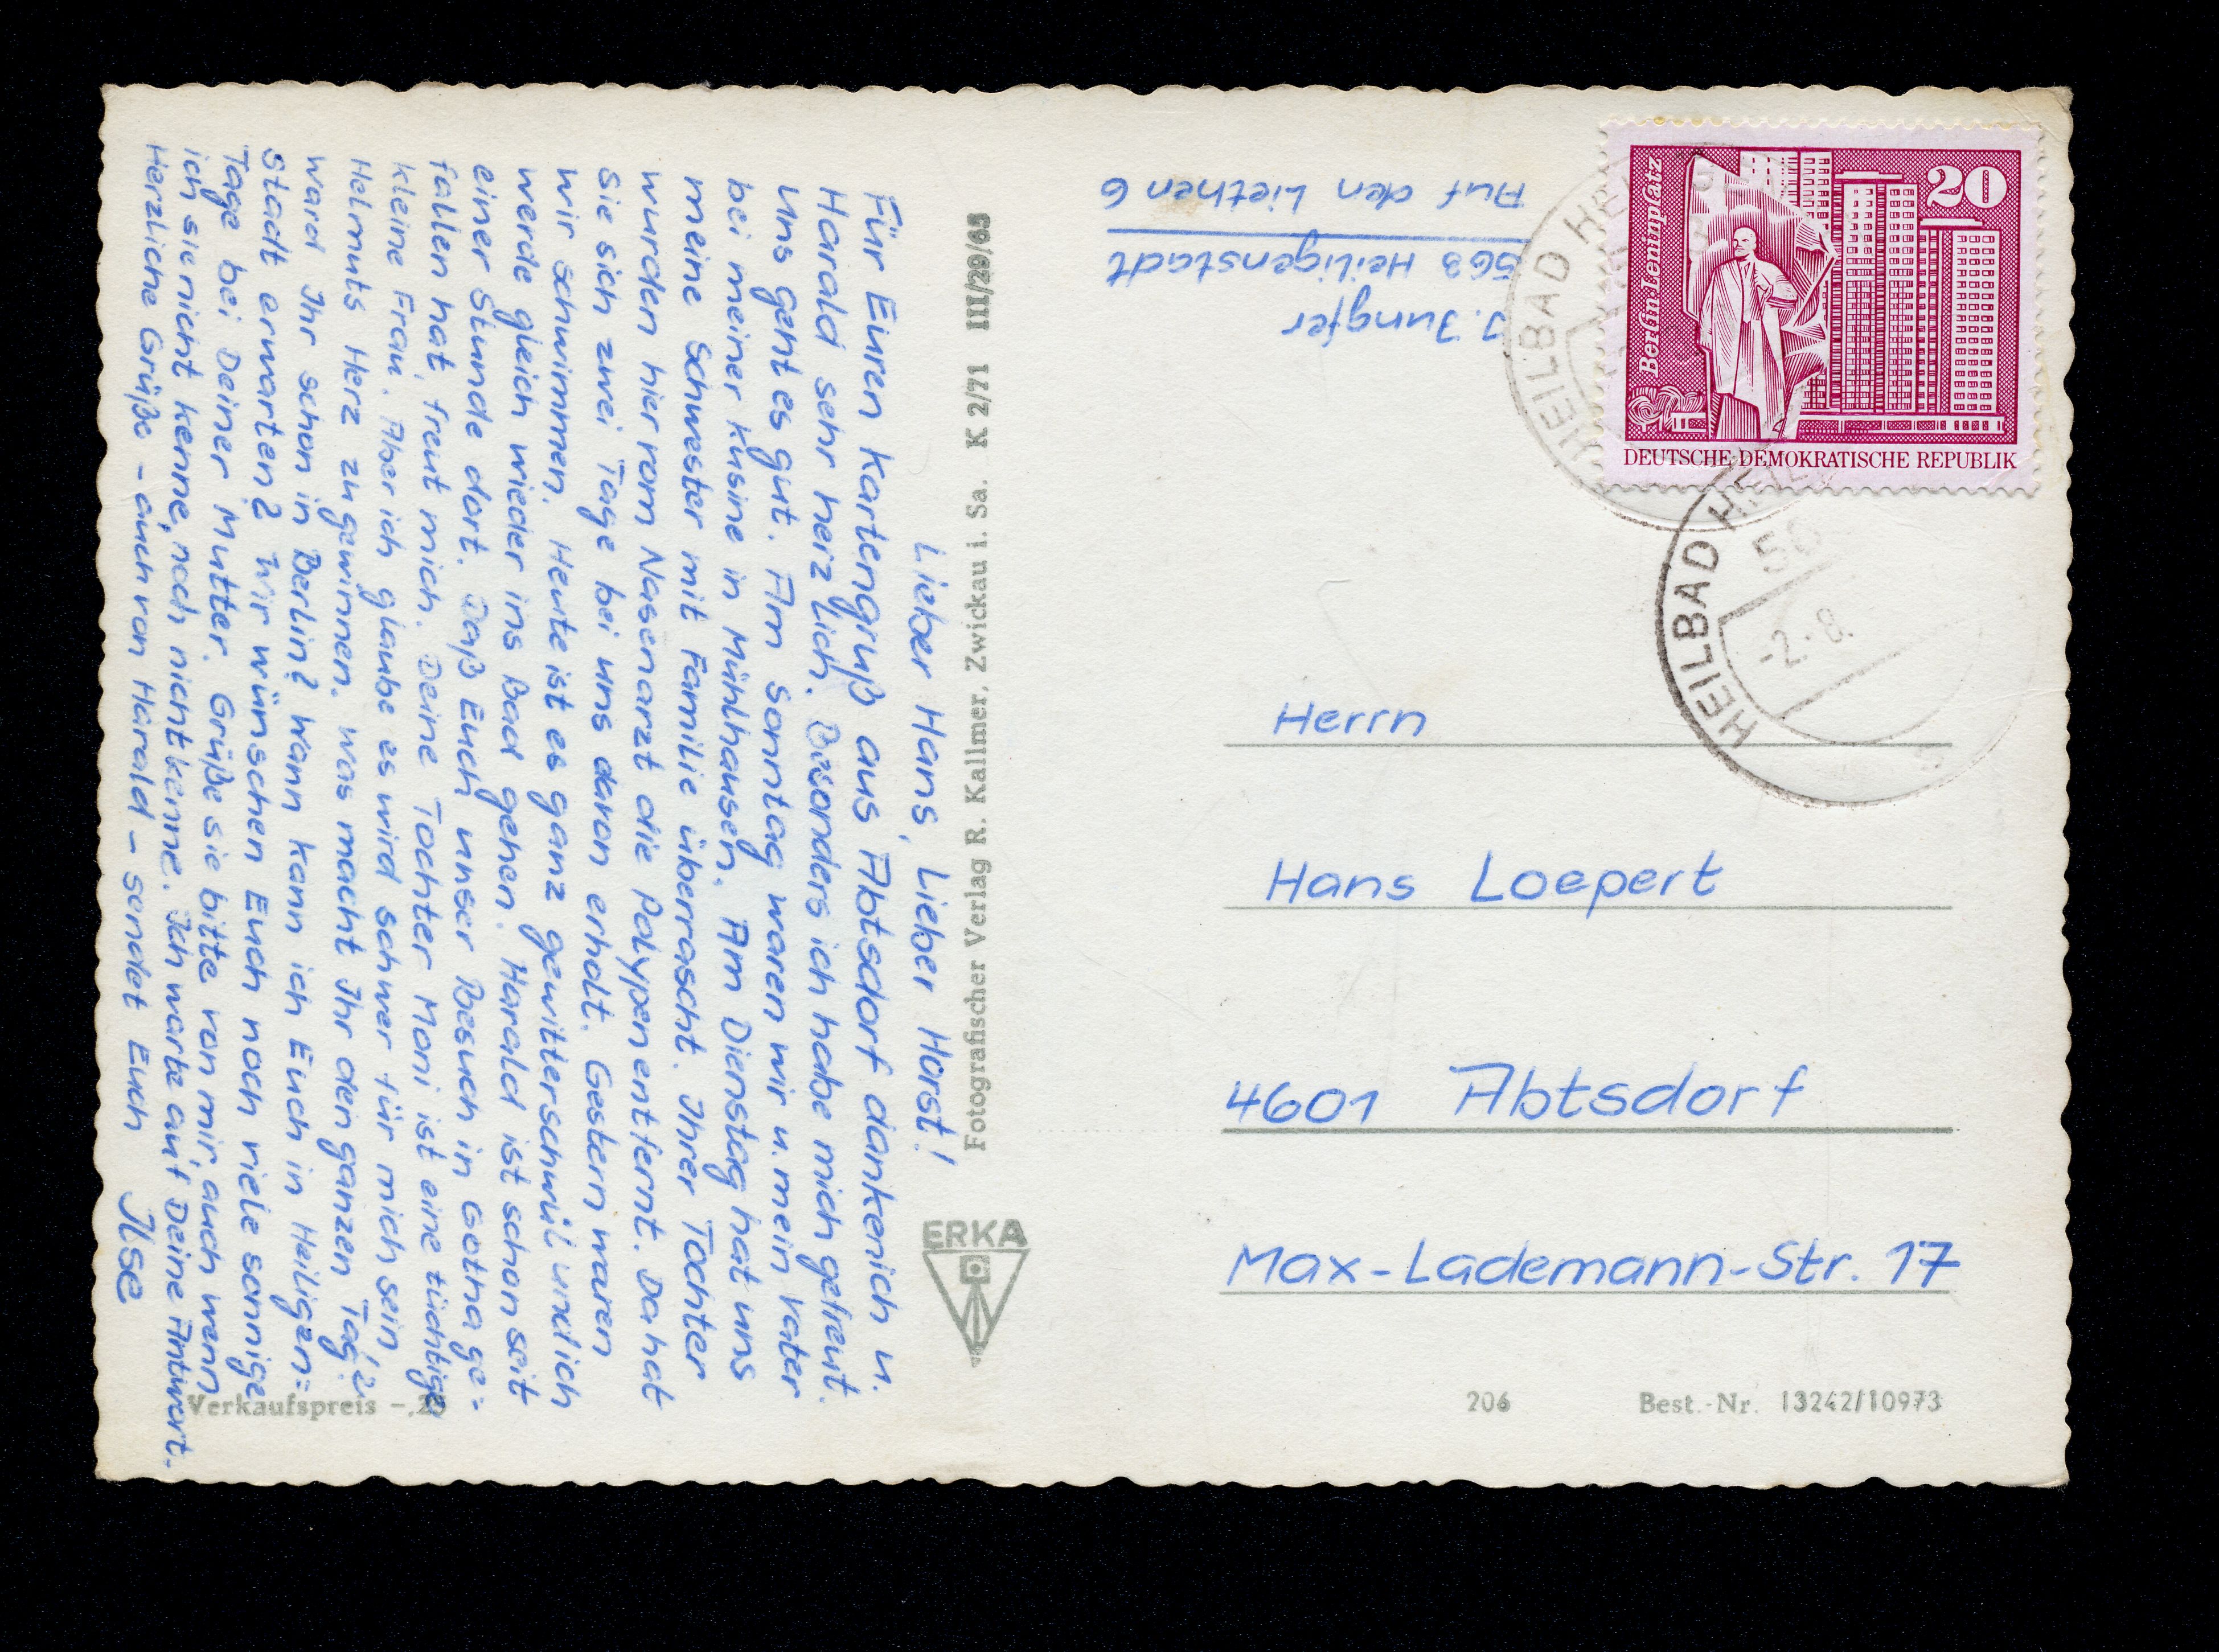 Lieber Hans, Lieber Horst!
Für Euren Kartengruß aus Abtsdorf danken ich u.
Harald sehr herzlich. Besonders ich habe mich gefreut.
Uns geht es gut. Am Sonntag waren wir u. mein Vater
bei meiner Kusine in Mühlhausen. Am Dienstag hat uns
meine Schwester mit Familie überrascht. Ihrer Tochter
wurden hier vom Nasenarzt die Polypen entfernt. Da hat
sie sich zwei Tage bei uns davon erholt. Gestern waren
wir schwimmen. Heute ist es ganz gewitterschwül und ich
werde gleich wieder ins Bad gehen. Harald ist schon seit
einer Stunde dort. Daß Euch unser Besuch in Gotha ge=
fallen hat, freut mich. Deine Tochter Moni ist eine tüchtige
kleine Frau. Aber ich glaube es wird schwer für mich sein
Helmuts Herz zu gewinnen. Was macht Ihr den ganzen Tag?
Ward Ihr schon in Berlin? Wann kann ich Euch in Heiligen=
stadt erwarten? Wir wünschen Euch noch viele sonnige
Tage bei Deiner Mutter. Grüße sie bitte von mir, auch wenn
ich sie nicht kenne, noch nicht kenne. Ich warte auf Deine Antwort.
Herzliche Grüße - auch von Harald - sendet Euch Ilse
Fotografischer Verlag R. Kallmer, Zwickau i. Sa. K 2/71 III/29/65
ERKA
Verkaufspreis -,
J. Jungfer
563 Heiligenstadt
Auf den Liethen 6
Berlin-Leninplatz
20
DEUTSCHE DEMOKRATISCHE REPUBLIK
HEILBAD
HEILBAD
-2.-8.
Herrn
Hans Loepert
4601 Abtsdorf
Max-Lademann-Str. 17
206 Best.-Nr. 13242/10973